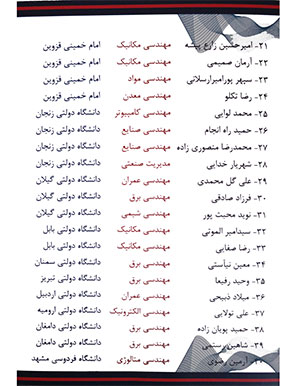 ۲۱- امیرحسین زارع پیشه مهندسی مکانیک امام خمینی قزوین
۲۲- آرمان صمیمی مهندسی مکانیک امام خمینی قزوین
۲۳- سپهر پورامیرارسلانی مهندسی مواد امام خمینی قزوین
۲۴- رضا تکلو مهندسی معدن امام خمینی قزوین
۲۵- محمد لوایی مهندسی کامپیوتر دانشگاه دولتی زنجان
۲۶- حمید راه انجام مهندسی صنایع دانشگاه دولتی زنجان
۲۷- محمدرضا منصوری زاده مهندسی صنایع دانشگاه دولتی زنجان
۲۸- شهریار خدایی مدیریت صنعتی دانشگاه دولتی زنجان
۲۹- علی گل محمدی مهندسی عمران دانشگاه دولتی گیلان
۳۰- فرزاد صادقی مهندسی برق دانشگاه دولتی گیلان
۳۱- نوید محبت پور مهندسی شیمی دانشگاه دولتی گیلان
۳۲- سیدامیر الموتی مهندسی مکانیک دانشگاه دولتی بابل
۳۳- رضا صفایی مهندسی مکانیک دانشگاه دولتی بابل
۳۴- معین نیاستی مهندسی برق دانشگاه دولتی سمنان
۳۵- وحید رفیعا مهندسی برق دانشگاه دولتی تبریز
۳۶- میلاد ذبیحی مهندسی عمران دانشگاه دولتی اردبیل
۳۷- علی تولایی مهندسی الکترونیک دانشگاه دولتی ارومیه
۳۸- حمید پویان زاده مهندسی برق دانشگاه دولتی دامغان
۳۹- شاهین رستمی مهندسی برق دانشگاه دولتی دامغان
آرمین رضوی مهندسی متالوژی دانشگاه فردوسی مشهد